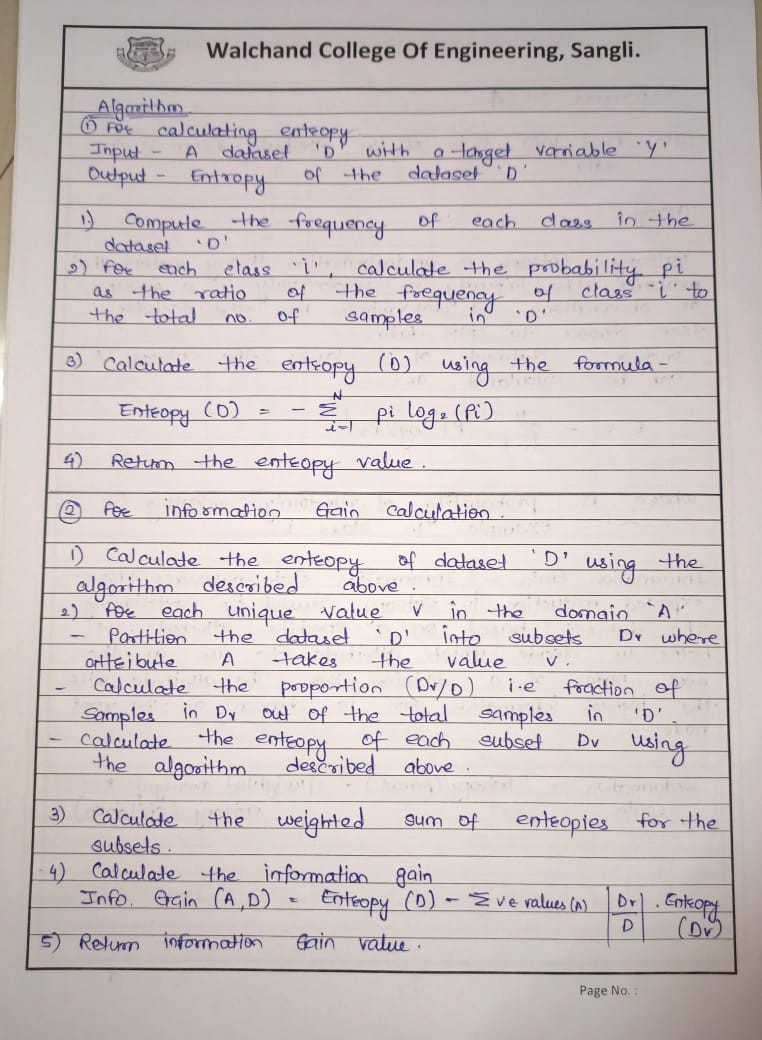 Walchand College Of Engineering, Sangli.
Algorithm
① For calculating entropy
Input - A dataset 'D' with a target variable 'Y'
Output - Entropy of the dataset 'D'
1) Compute the frequency of each class in the
dataset 'D'
2) for each class 'i', calculate the probability pi
as the ratio of the frequency of class 'i' to
the total no. of samples in 'D'
3) Calculate the entropy (D) using the formula -
Entropy (D) = - Σ_{i=1}^{N} pi log₂ (Pi)
4) Return the entropy value.
② for information Gain calculation.
1) Calculate the entropy of dataset 'D' using the
algorithm described above.
2) for each unique value v in the domain 'A'
- Partition the dataset 'D' into subsets Dv where
attribute A takes the value v.
- Calculate the proportion (Dv/D) i.e fraction of
samples in Dv out of the total samples in 'D'.
- Calculate the entropy of each subset Dv using
the algorithm described above.
3) Calculate the weighted sum of entropies for the
subsets.
4) Calculate the information gain
Info. Gain (A,D) = Entropy (D) - Σ v ε values (A) |Dv/D| . Entropy
(Dv)
5) Return information Gain value.
Page No. :